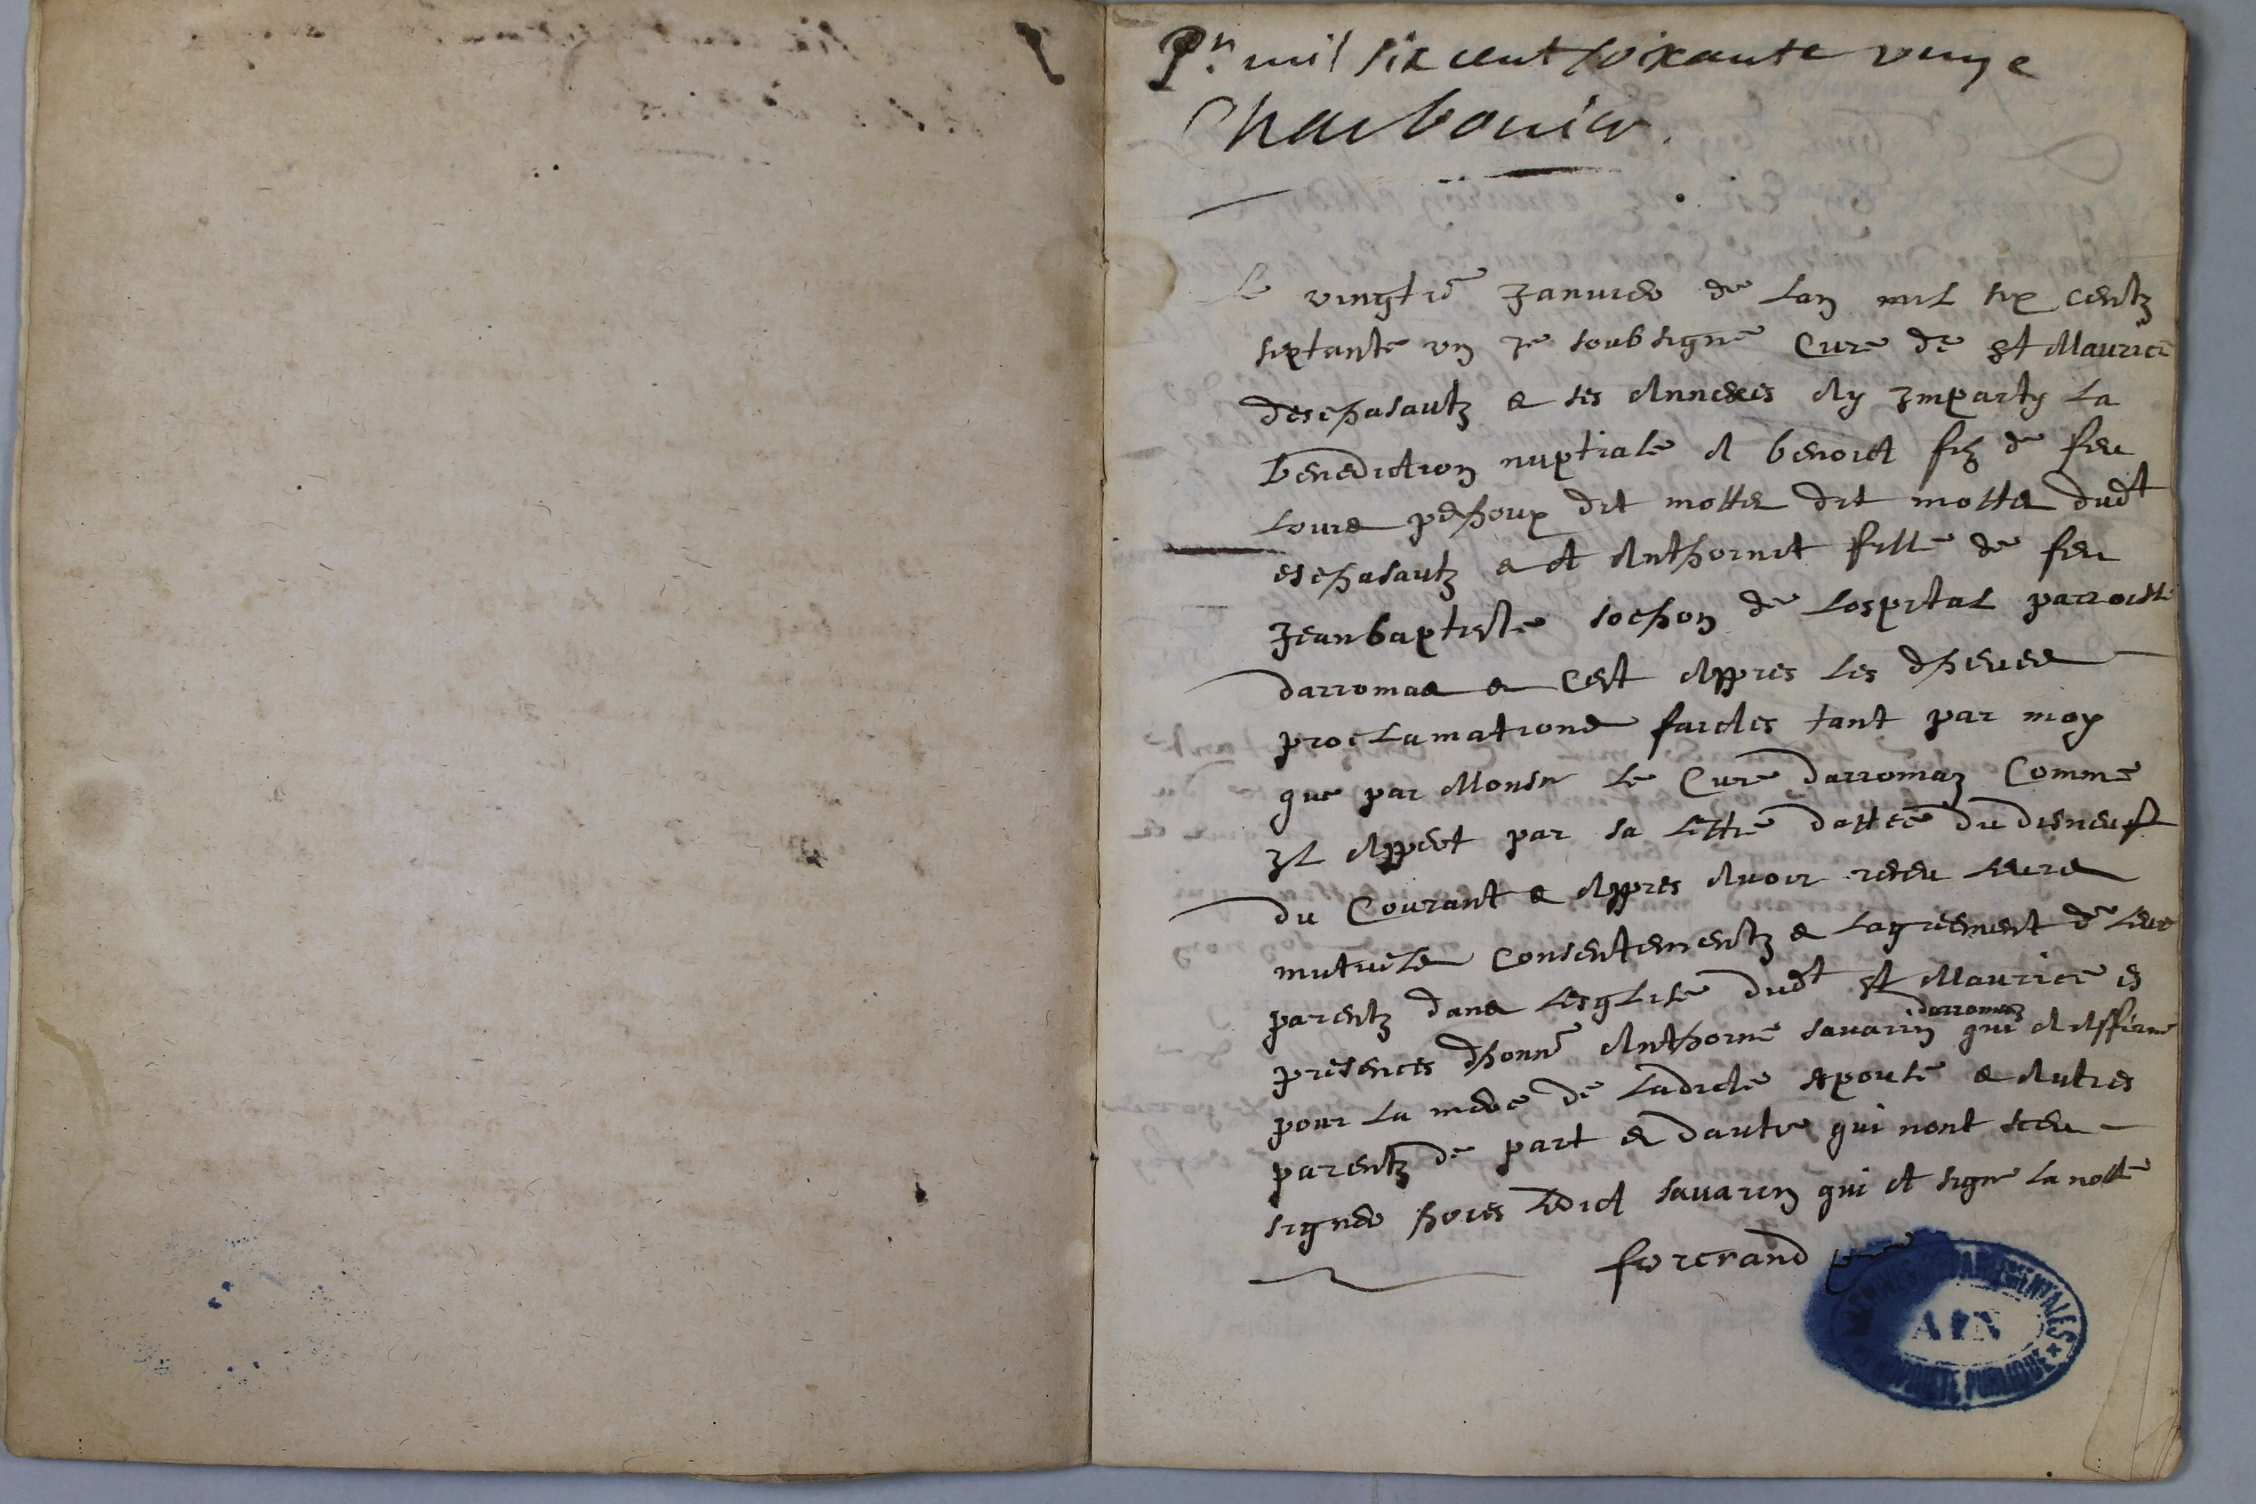 Pr. mil six cent soixante unze
Charbonier.
Le vingtie Janvier de Lan mil six centz
septante un Je soubsigné Curé de St Maurice
deschasautz & ses Annexes Ay Imparty La
benediction nuptiale A benoict filz de feu
Louis pechoux dit mottet dit mottet dudt
eschasautz & A Anthoinet fille de feu
Jeanbaptiste sochon de Lospital parroisse
darromas & Cest Appres Les dheues
proclamations faictes tant par moy
que par Monsr Le Curé darromaz Comme
Il Appert par sa Lettre dattée du disneuf
du Courant & Appres Avoir receu Leurs
mutuels Consentementz & Lagreement de Leurs
parentz dans Lesglise dudt St Maurice es
presences dhonne Anthoine savarin darromaz qui A Affirmé
pour La mere de Ladicte espouse & Autres
parentz de part & dautre qui nont sceu
signer hors Ledict savarin qui A signé La notte
forcrand
ARCHIVES DEPARTEMENTALES
AIN
PUBLIQUE